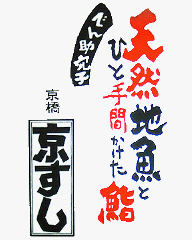 天然地魚と
ひと手間かけた
鮨
でん助丸子
京橋
京すし